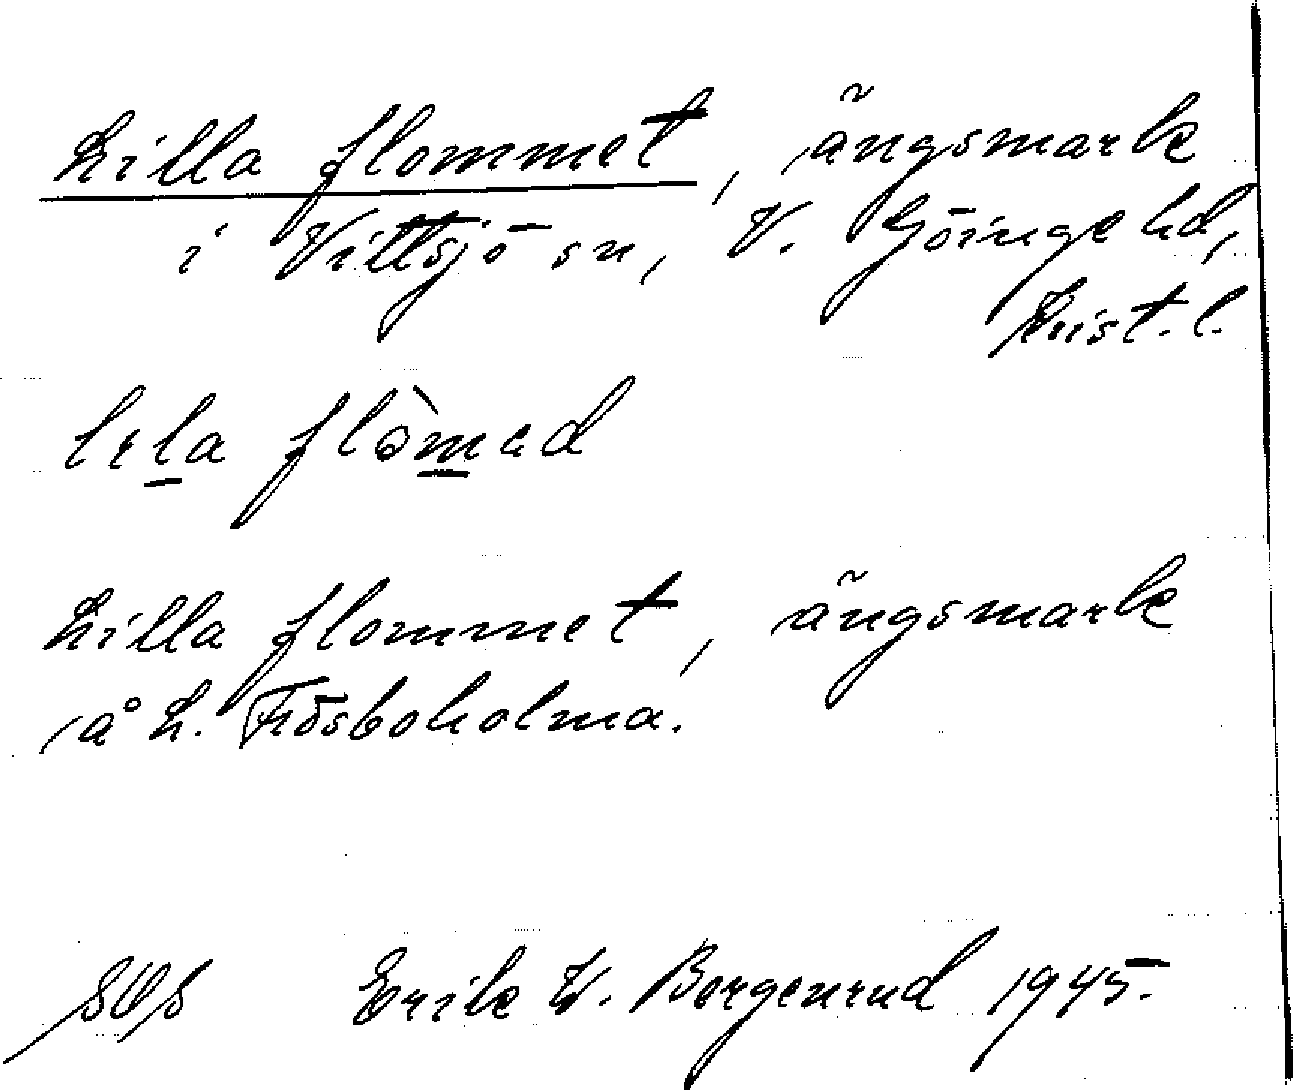 Lilla flommet, ängsmark
i Vittsjö sn, V. Göinge hd,
Krist. l.
lela flòmed
Lilla flommet, ängsmark
å L. Frösboholma.
Erik W. Bergenrud 1945.